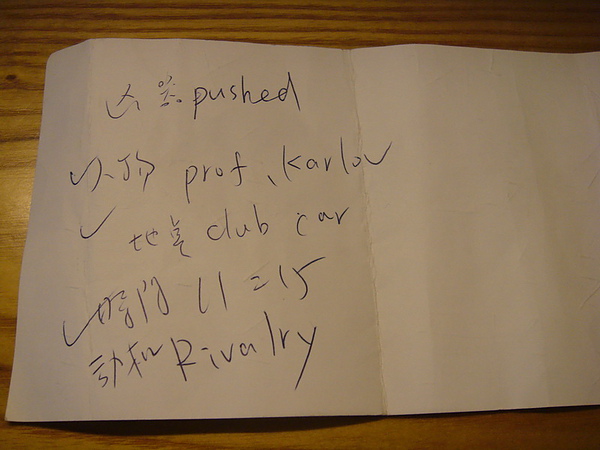 凶器 pushed
✓人物 prof. Karlov
✓ 地点 club car
✓時间 11:15
动机 Rivalry